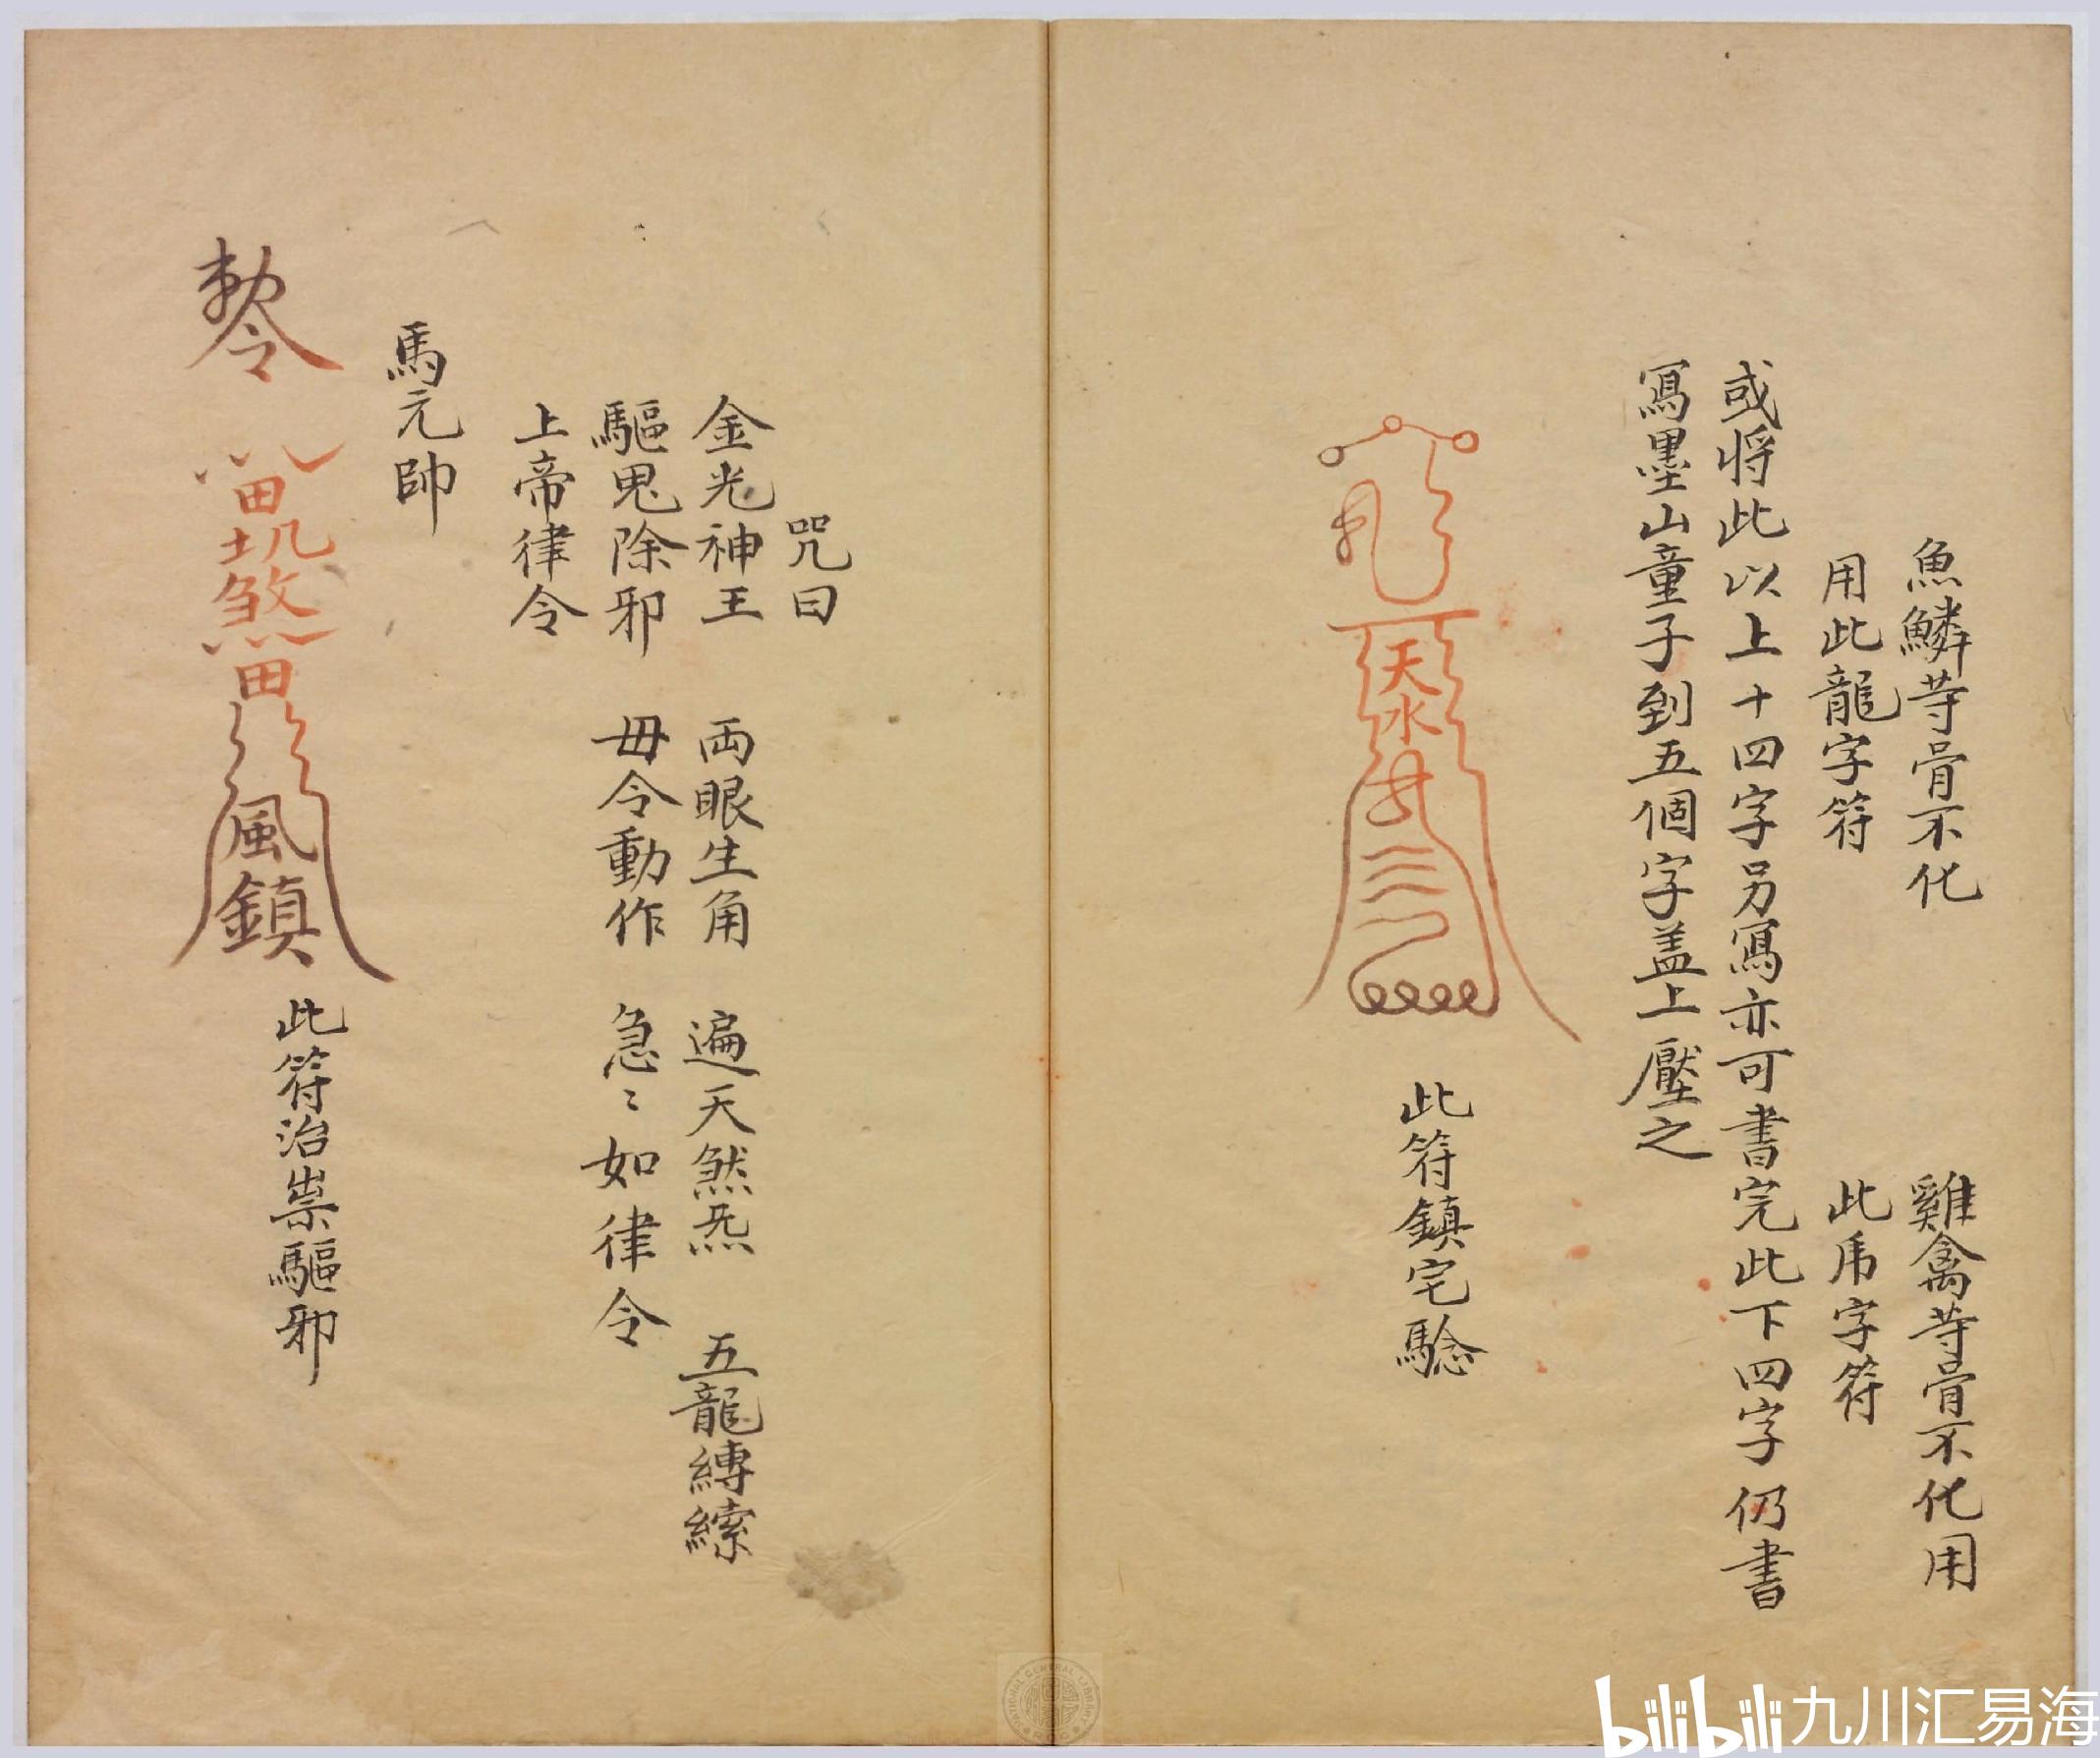 魚鱗䓁骨不化　雞禽䓁骨不化用
用此龍字符　此乕字符
或将此以上十四字另寫亦可書完此下四字仍書
寫墨山童子到五個字盖上壓之
天
水
此符鎮宅騐
咒曰
金光神王　両眼生角　遍天煞炁　五龍縛縤
驅鬼除邪　毋令動作　急〻如律令
上帝律令
馬元帥
勅令
田
煞
田
風
鎮
此符治祟驅邪
NATIONAL CENTRAL LIBRARY
bilibili 九川汇易海